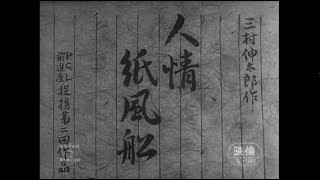 三村伸太郎作
人情
紙風船
P.C.L
前進座
提携第二回作品
映倫